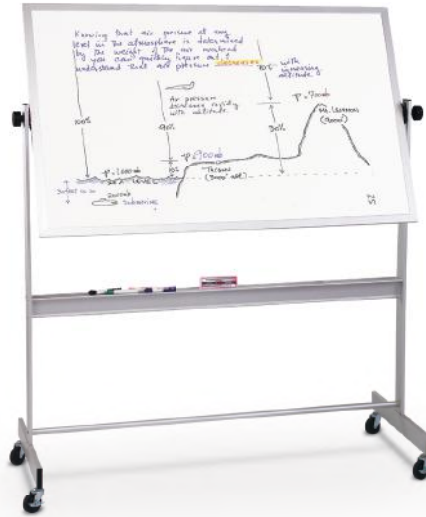 Knowing that air pressure at any
level in the atmosphere is determined
by the weight of the air overhead
you can quickly figure out &
understand that air pressure decreases
with
increasing
altitude.
Air pressure
decreases rapidly
with altitude.
100%
90%
70%
10%
30%
P=700mb
Mt. Lemmon
(9000')
P=900mb
Tucson
P=1000mb
sea level
2000mb
Submarine